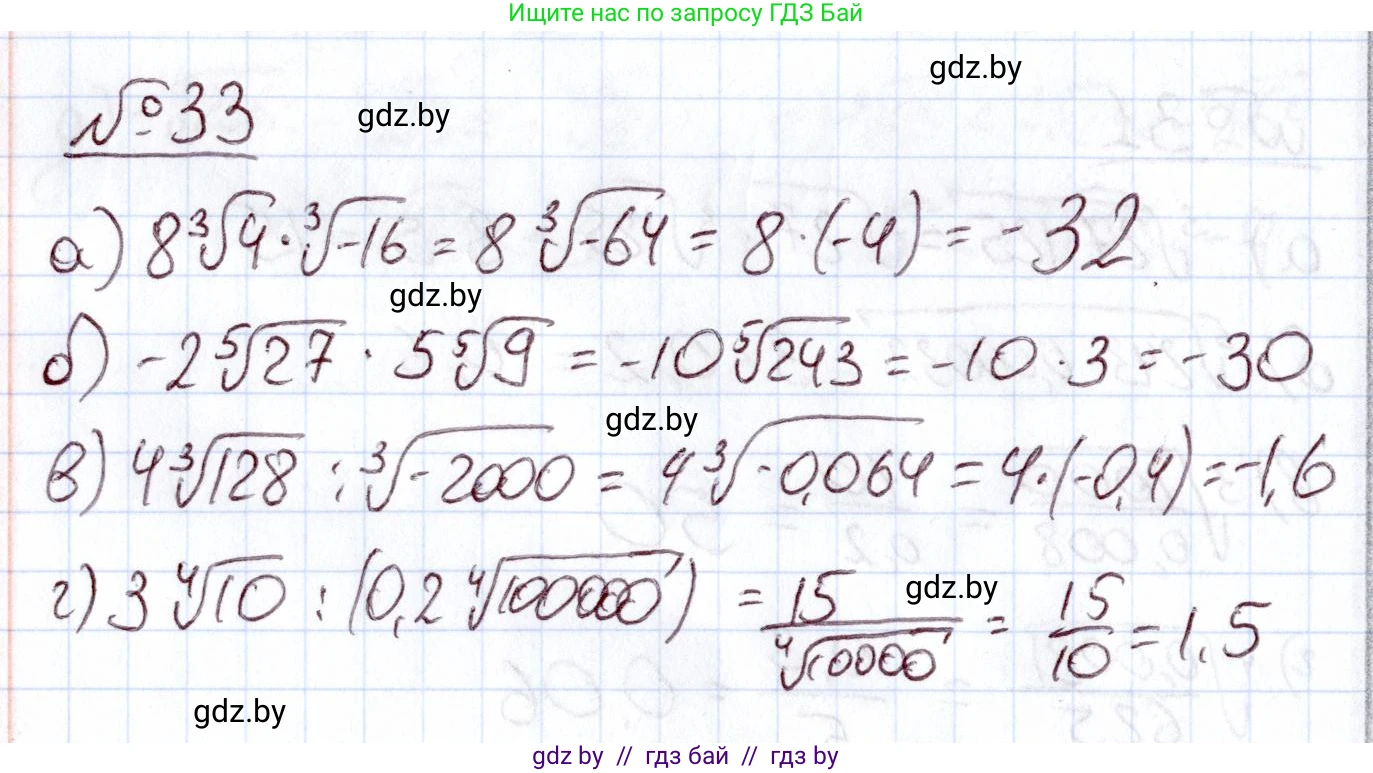 Ищите нас по запросу ГДЗ Бай
gdz.by
№ 33
gdz.by
а) 8∛4 · ∛-16 = 8 ∛-64 = 8 · (-4) = -32
gdz.by
б) -2 ⁵√27 · 5 ⁵√9 = -10 ⁵√243 = -10 · 3 = -30
gdz.by
в) 4∛128 : ∛-2000 = 4 ∛-0,064 = 4 · (-0,4) = -1,6
г) 3 ⁴√10 : (0,2 ⁴√100000) = 15/⁴√10000 = 15/10 = 1,5
gdz.by
gdz.by
gdz by // гдз бай // гдз by